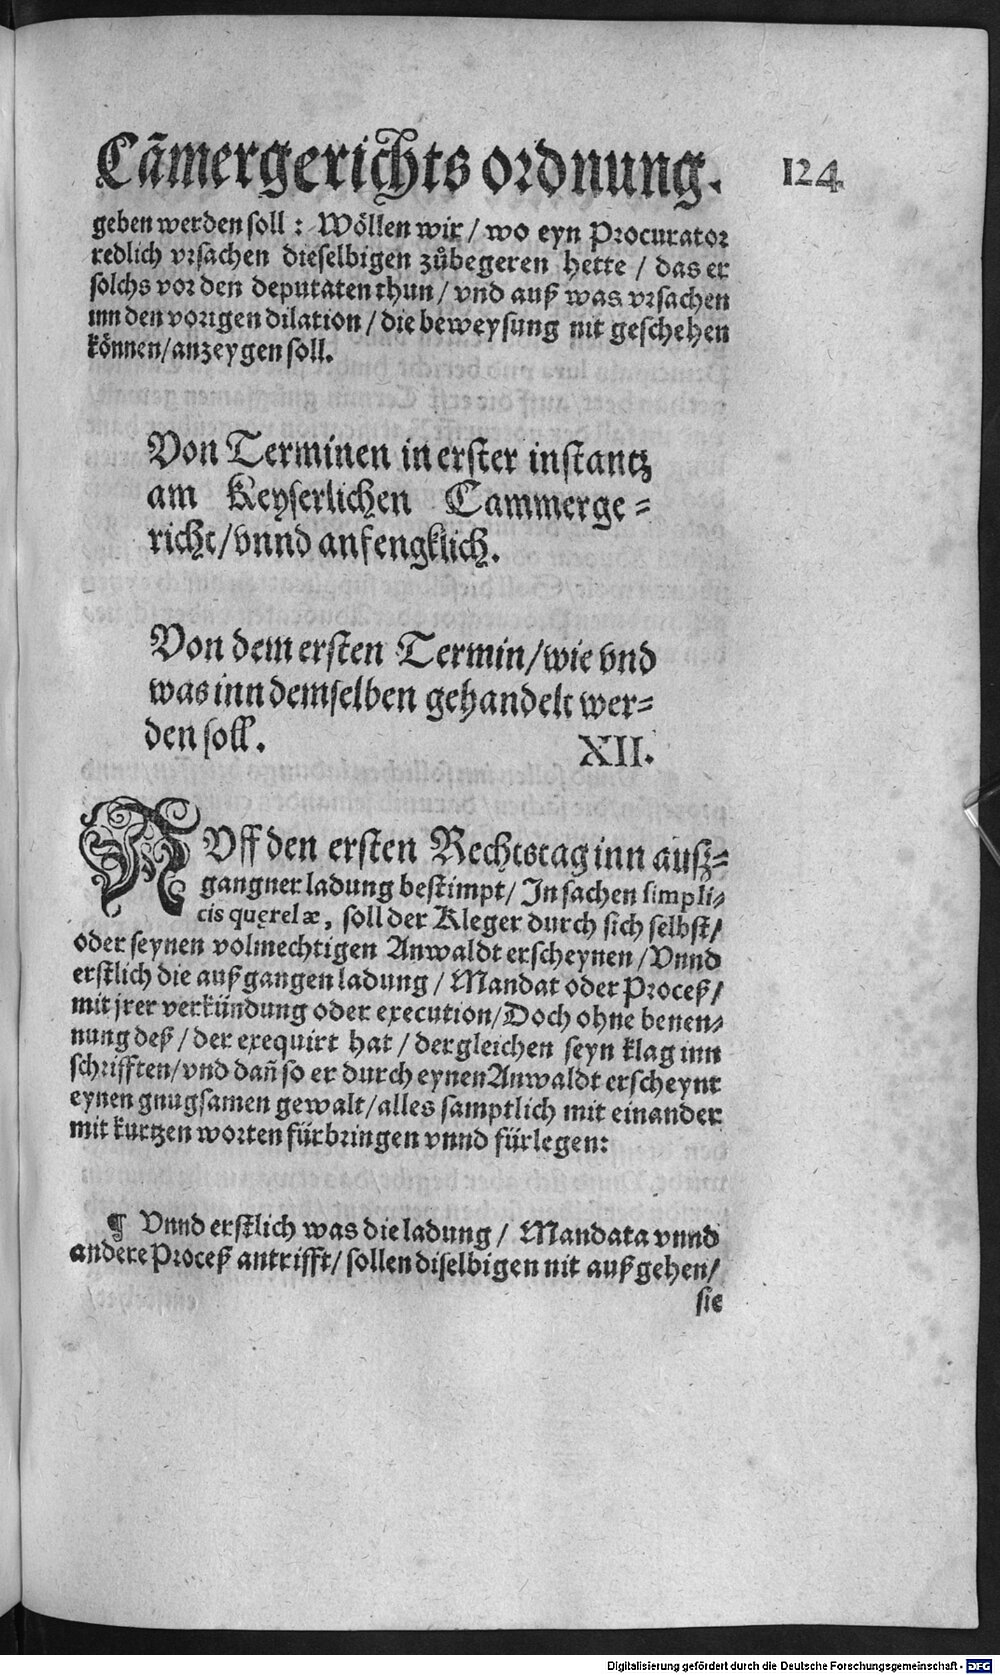 Cãmergerichts ordnung. 124.
geben werden soll: Wöllen wir / wo eyn Procurator
redlich vrsachen dieselbigen zůbegeren hette / das er
solchs vor den deputaten thun / vnd auß was vrsachen
inn den vorigen dilation / die beweysung nit geschehen
können / anzeygen soll.
Von Terminen in erster instantz
am Keyserlichen Cammerge=
richt / vnnd anfengklich.
Von dem ersten Termin / wie vnd
was inn demselben gehandelt wer=
den soll. XII.
AVff den ersten Rechtstag inn ausz=
gangner ladung bestimpt / In sachen simpli=
cis quęrelæ, soll der Kleger durch sich selbst /
oder seynen volmechtigen Anwaldt erscheynen / Vnnd
erstlich die außgangen ladung / Mandat oder Proceß /
mit jrer verkündung oder execution / Doch ohne benen=
nung deß / der exequirt hat / dergleichen seyn klag inn
schrifften / vnd dañ so er durch eynen Anwaldt erscheynt
eynen gnugsamen gewalt / alles samptlich mit einander
mit kurtzen worten fürbringen vnnd fürlegen:
¶ Vnnd erstlich was die ladung / Mandata vnnd
andere Proceß antrifft / sollen diselbigen nit außgehen /
sie
Digitalisierung gefördert durch die Deutsche Forschungsgemeinschaft - DFG